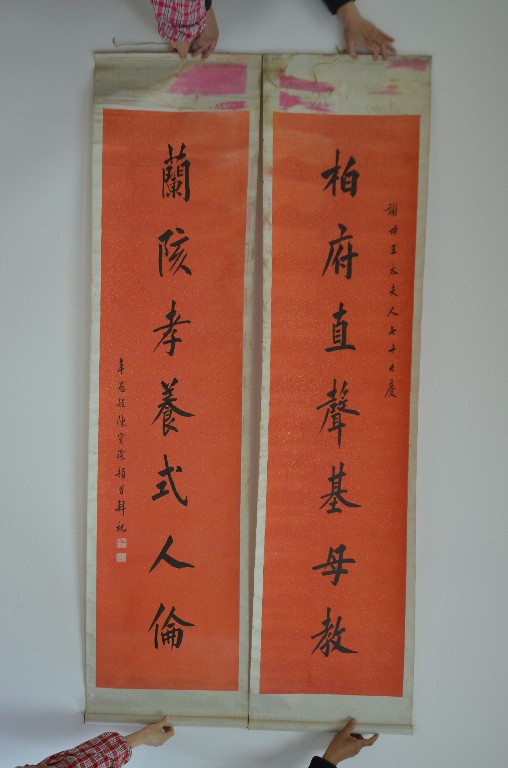 謝母王太夫人七十大慶
柏府直聲基母教
蘭陔孝養式人倫
年愚姪陳寶琛頓首拜祝